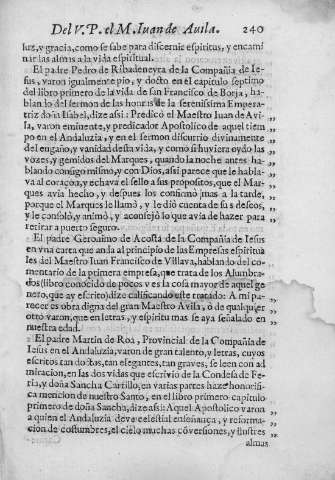 Del V. P. el M. Iuan de Auila. 240
luz, y gracia, como se sabe para discernir espiritus, y encami
nar las almas a la vida espiritual.
El padre Pedro de Ribadeneyra de la Compañia de Ie-
sus, varon igualmente pio, y docto en el capitulo septimo
del libro primero de la vida de san Francisco de Borja, ha-
blando del sermon de las honras de la serenissima Empera-
triz doña Isabel, dize assi: Predicò el Maestro Iuan de Avi-
la, varon eminente, y predicador Apostolico de aquel tiem
po en el Andaluzia, y en el sermon discurrio divinamente
del engaño, y vanidad desta vida, y como si huviera oydo las
vozes, y gemidos del Marques, quando la noche antes ha-
blando consigo mismo, y con Dios, assi parece que le habla-
va al coraçon, y echava el sello a sus propositos, que el Mar-
ques avia hecho, y despues los confirmò mas a la tarde,
porque el Marques le llamò, y le diò cuenta de sus deseos,
y le consolò, y animò, y aconsejò lo que avia de hazer para
retirar a puerto seguro.
El padre Geronimo de Acosta de la Compañia de Iesus
en vna carta que anda al principio de las Empresas espiritua
les del Maestro Iuan Francisco de Villava, hablando del co-
mentario de la primera empresa, que trata de los Alumbra-
dos (libro conocido de pocos y es la cosa mayor de aquel ge
nero, que ay escrito) dize calificando este tratado: A mi pa-
recer es obra digna del gran Maestro Avila, ò de qualquier
otro varon, que en letras, y espiritu mas se aya señalado en
nuestra edad.
El padre Martin de Roa, Provincial de la Compañia de
Iesus en el Andaluzia, varon de gran talento, y letras, cuyos
escritos tan doctos, tan elegantes, tan graves, se leen con ad
miracion, en las dos vidas que escrivio de la Condesa de Fe-
ria, y doña Sancha Carrillo, en varias partes haze honorifi-
ca mencion de nuestro Santo, en el libro primero capitulo
primero de doña Sancha, dize assi: Aquel Apostolico varon
a quien el Andaluzia deve celestial enseñança, y reforma-
cion de costumbres, el cielo muchas cõversiones, y ilustres
almas